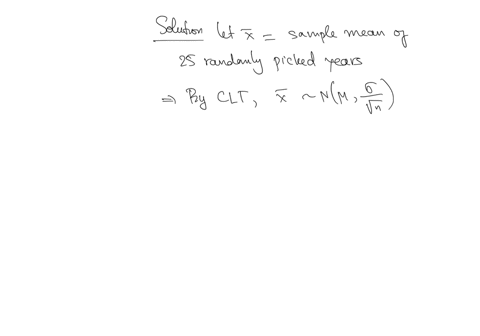 Solution let x̄ = sample mean of
25 randomly picked years
⇒ By CLT, x̄ ~ N(M, σ/√n)